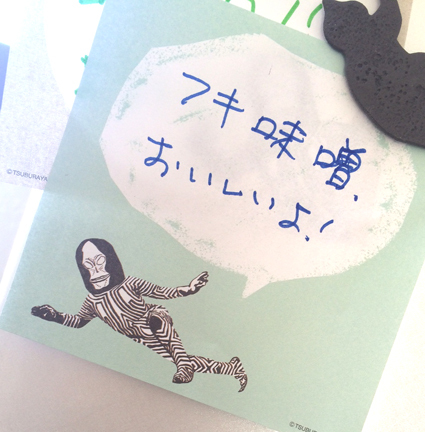 フキ味噌、
おいしいよ!
©TSUBURAYA
©TSUBURA